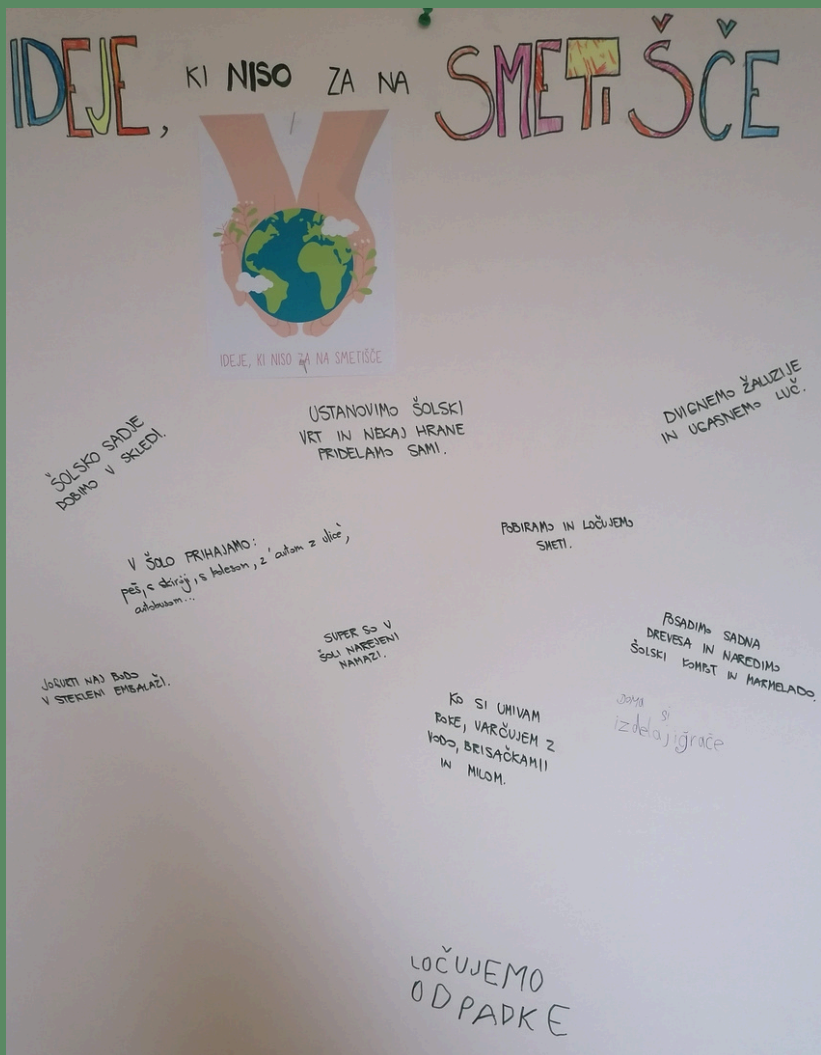 IDEJE, KI NISO ZA NA SMETIŠČE
IDEJE, KI NISO ZA NA SMETIŠČE
ŠOLSKO SADJE
DOBIMO V SKLEDI.
USTANOVIMO ŠOLSKI
VRT IN NEKAJ HRANE
PRIDELAMO SAMI.
DVIGNEMO ŽALUZIJE
IN UGASNEMO LUČ.
V ŠOLO PRIHAJAMO:
peš, s skiroji, s kolesom, z 'avtom z ulice',
avtobusom...
POBIRAMO IN LOČUJEMO
SMETI.
SUPER SO V
ŠOLI NAREJENI
NAMAZI.
POSADIMO SADNA
DREVESA IN NAREDIMO
ŠOLSKI KOMPOT IN MARMELADO.
JOGURTI NAJ BODO
V STEKLENI EMBALAŽI.
KO SI UMIVAM
ROKE, VARČUJEM Z
VODO, BRISAČKAMI
IN MILOM.
DOMA SI
izdelaj igrače
LOČUJEMO
ODPADKE